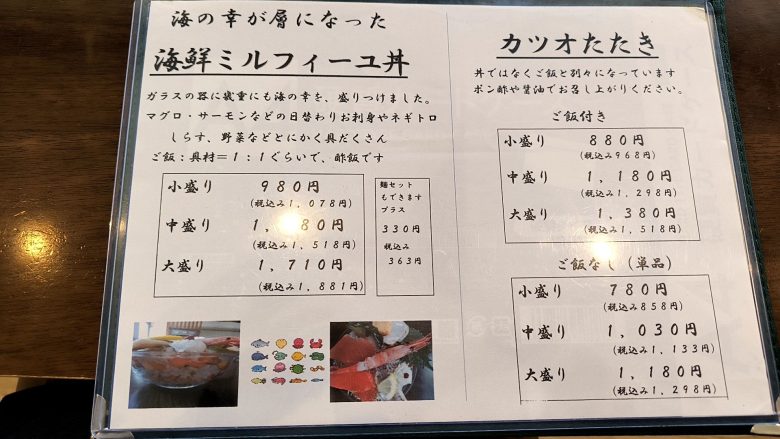 海の幸が層になった
海鮮ミルフィーユ丼
ガラスの器に幾重にも海の幸を、盛りつけました。
マグロ・サーモンなどの日替わりお刺身やネギトロ
しらす、野菜などとにかく具だくさん
ご飯:具材=1:1ぐらいで、酢飯です
小盛り 980円
(税込み1,078円)
中盛り 1, 80円
(税込み1,518円)
大盛り 1,710円
(税込み1,881円)
麺セット
もできます
プラス
330円
税込み
363円
カツオたたき
丼ではなくご飯と別々になっています
ポン酢や醤油でお召し上がりください。
ご飯付き
小盛り 880円
(税込み968円)
中盛り 1,180円
(税込み1,298円)
大盛り 1,380円
(税込み1,518円)
ご飯なし(単品)
小盛り 780円
(税込み858円)
中盛り 1,030円
(税込み1,133円)
大盛り 1,180円
(税込み1,298円)